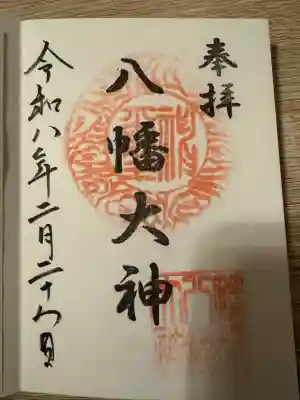 奉拝
八幡大神
令和八年二月二十七日